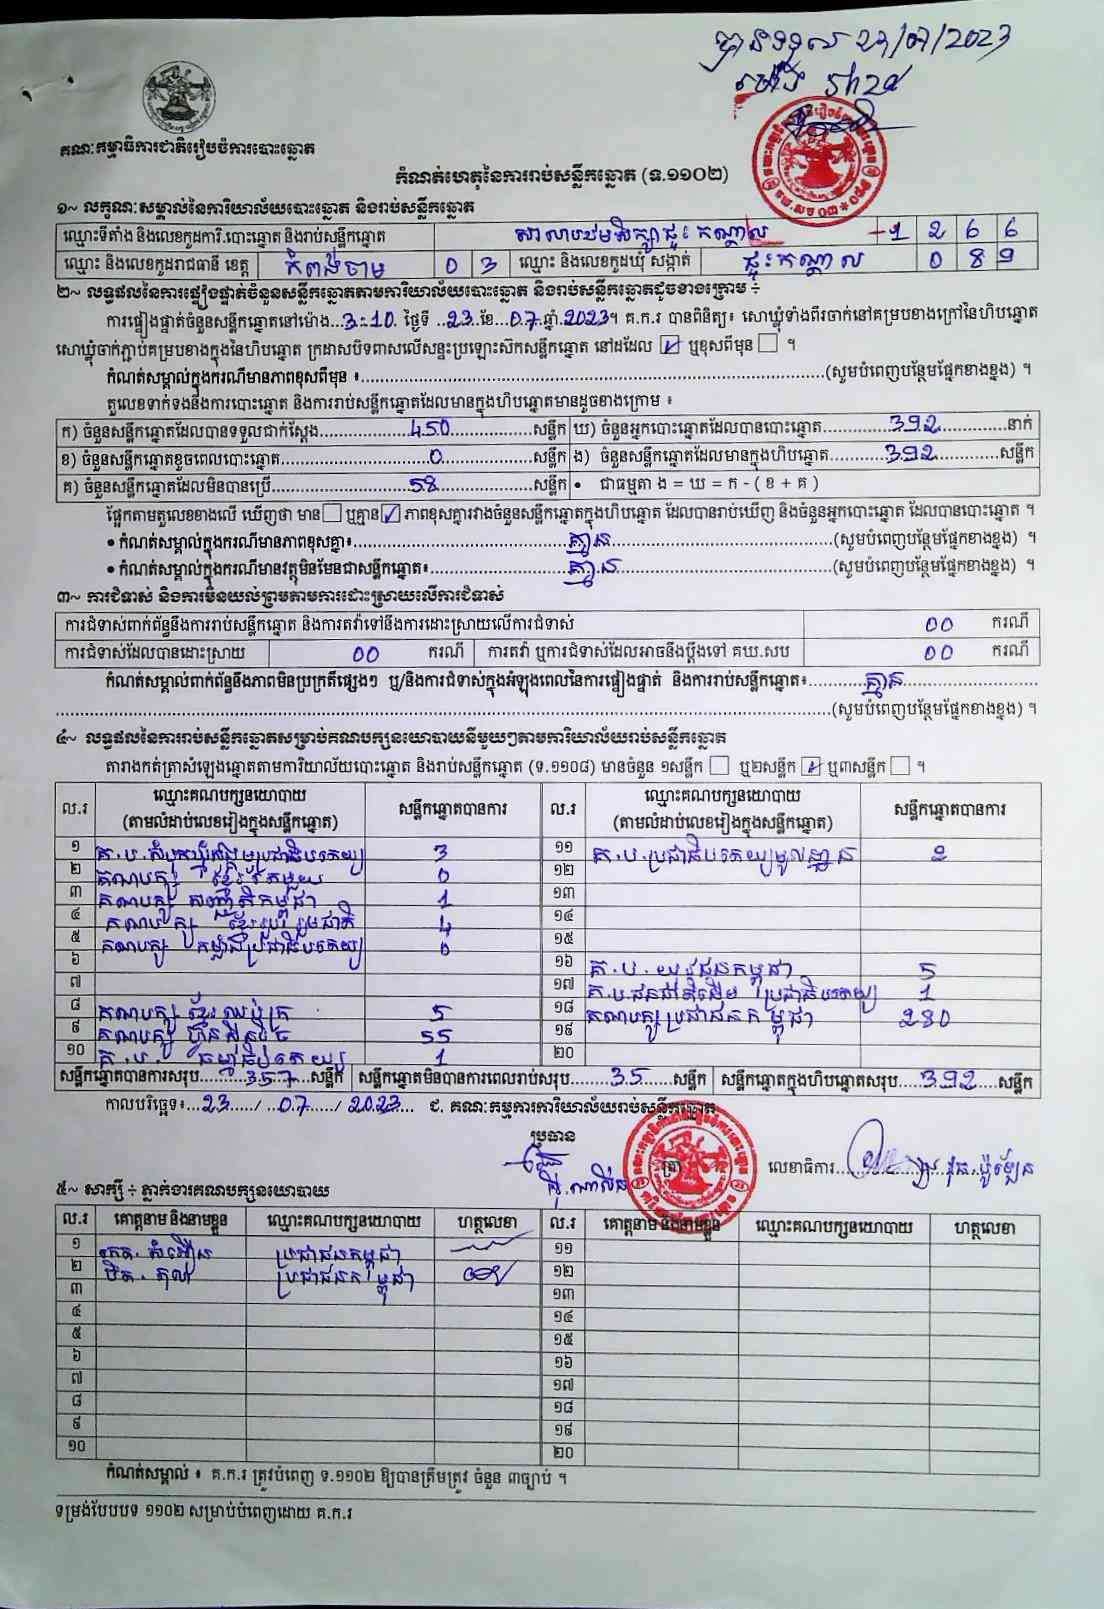 បានទទួល 23/07/2023
ម៉ោង 5h25
គណៈកម្មាធិការជាតិរៀបចំការបោះឆ្នោត
កំណត់ហេតុនៃការរាប់សន្លឹកឆ្នោត (ទ.១១០២)
១~ លក្ខណៈសម្គាល់នៃការិយាល័យបោះឆ្នោត និងរាប់សន្លឹកឆ្នោត
ឈ្មោះទីតាំង និងលេខកូដការិ.បោះឆ្នោត និងរាប់សន្លឹកឆ្នោត សាលាបឋមសិក្សាជ្ជុះកណ្តាល 1 2 6 6
ឈ្មោះ និងលេខកូដរាជធានី ខេត្ត កំពង់ចាម 0 3 ឈ្មោះ និងលេខកូដឃុំ សង្កាត់ កណ្តាល 0 8 9
២~ លទ្ធផលនៃការផ្ទៀងផ្ទាត់ចំនួនសន្លឹកឆ្នោតតាមការិយាល័យបោះឆ្នោត និងរាប់សន្លឹកឆ្នោតដូចខាងក្រោម ÷
ការផ្ទៀងផ្ទាត់ចំនួនសន្លឹកឆ្នោតនៅម៉ោង...3:10. ថ្ងៃទី ..23..ខែ..07..ឆ្នាំ.2023។ គ.ក.រ បានពិនិត្យ៖ សោឃ្លុំទាំងពីរចាក់នៅគម្របខាងក្រៅនៃហិបឆ្នោត
សោឃ្លុំចាក់ភ្ជាប់គម្របខាងក្នុងនៃហិបឆ្នោត ក្រដាសបិទពាសលើសន្ទះប្រឡោះស៊កសន្លឹកឆ្នោត នៅដដែល ☑ ឬខុសពីមុន ☐ ។
កំណត់សម្គាល់ក្នុងករណីមានភាពខុសពីមុន ៖..........(សូមបំពេញបន្ថែមផ្នែកខាងខ្នង) ។
តួលេខទាក់ទងនឹងការបោះឆ្នោត និងការរាប់សន្លឹកឆ្នោតដែលមានក្នុងហិបឆ្នោតមានដូចខាងក្រោម ៖
ក) ចំនួនសន្លឹកឆ្នោតដែលបានទទួលជាក់ស្តែង..........450..........សន្លឹក ឃ) ចំនួនអ្នកបោះឆ្នោតដែលបានបោះឆ្នោត..........392..........នាក់
ខ) ចំនួនសន្លឹកឆ្នោតខូចពេលបោះឆ្នោត..........0..........សន្លឹក ង) ចំនួនសន្លឹកឆ្នោតដែលមានក្នុងហិបឆ្នោត..........392..........សន្លឹក
គ) ចំនួនសន្លឹកឆ្នោតដែលមិនបានប្រើ..........58..........សន្លឹក • ជាធម្មតា ង = ឃ = ក - ( ខ + គ )
ផ្អែកតាមតួលេខខាងលើ ឃើញថា មាន ☐ ឬគ្មាន ☑ ភាពខុសគ្នារវាងចំនួនសន្លឹកឆ្នោតក្នុងហិបឆ្នោត ដែលបានរាប់ឃើញ និងចំនួនអ្នកបោះឆ្នោត ដែលបានបោះឆ្នោត ។
• កំណត់សម្គាល់ក្នុងករណីមានភាពខុសគ្នា៖..........គ្មាន..........(សូមបំពេញបន្ថែមផ្នែកខាងខ្នង) ។
• កំណត់សម្គាល់ក្នុងករណីមានវត្ថុមិនមែនជាសន្លឹកឆ្នោត៖..........គ្មាន..........(សូមបំពេញបន្ថែមផ្នែកខាងខ្នង) ។
៣~ ការជំទាស់ និងការមិនយល់ព្រមតាមការដោះស្រាយលើការជំទាស់
ការជំទាស់ពាក់ព័ន្ធនឹងការរាប់សន្លឹកឆ្នោត និងការតវ៉ាទៅនឹងការដោះស្រាយលើការជំទាស់ 00 ករណី
ការជំទាស់ដែលបានដោះស្រាយ 00 ករណី ការតវ៉ា ឬការជំទាស់ដែលអាចនឹងប្តឹងទៅ គឃ.សប 00 ករណី
កំណត់សម្គាល់ពាក់ព័ន្ធនឹងភាពមិនប្រក្រតីផ្សេងៗ ឬ/និងការជំទាស់ក្នុងអំឡុងពេលនៃការផ្ទៀងផ្ទាត់ និងការរាប់សន្លឹកឆ្នោត៖..........គ្មាន..........
..........(សូមបំពេញបន្ថែមផ្នែកខាងខ្នង) ។
៤~ លទ្ធផលនៃការរាប់សន្លឹកឆ្នោតសម្រាប់គណបក្សនយោបាយនីមួយៗតាមការិយាល័យរាប់សន្លឹកឆ្នោត
តារាងកត់ត្រាសំឡេងឆ្នោតតាមការិយាល័យបោះឆ្នោត និងរាប់សន្លឹកឆ្នោត (ទ.១១០៨) មានចំនួន ១សន្លឹក ☐ ឬ២សន្លឹក ☑ ឬ៣សន្លឹក ☐ ។
ល.រ ឈ្មោះគណបក្សនយោបាយ (តាមលំដាប់លេខរៀងក្នុងសន្លឹកឆ្នោត) សន្លឹកឆ្នោតបានការ ល.រ ឈ្មោះគណបក្សនយោបាយ (តាមលំដាប់លេខរៀងក្នុងសន្លឹកឆ្នោត) សន្លឹកឆ្នោតបានការ
១ គ.ប.សំបុកឃ្មុំសង្គមប្រជាធិបតេយ្យ 3 ១១ គ.ប.ប្រជាធិបតេយ្យមូលដ្ឋាន 2
២ គណបក្ស ខ្មែររួមគ្នា 0 ១២
៣ គណបក្ស សញ្ជាតិកម្ពុជា 1 ១៣
៤ គណបក្ស ខ្មែររួបរួមជាតិ 4 ១៤
៥ គណបក្ស កម្លាំងប្រជាធិបតេយ្យ 0 ១៥
៦ ១៦ គ.ប.យុវជនកម្ពុជា 5
៧ ១៧ គ.ប.ជនជាតិដើម ប្រជាធិបតេយ្យ 1
៨ គណបក្ស ខ្មែរឈប់ក្រ 5 ១៨ គណបក្សប្រជាជនកម្ពុជា 280
៩ គណបក្ស ហ្វ៊ុនស៊ិនប៉ិច 55 ១៩
១០ គ.ប. ធម្មាធិបតេយ្យ 1 ២០
សន្លឹកឆ្នោតបានការសរុប..........357......សន្លឹក សន្លឹកឆ្នោតមិនបានការពេលរាប់សរុប.......35......សន្លឹក សន្លឹកឆ្នោតក្នុងហិបឆ្នោតសរុប....392....សន្លឹក
កាលបរិច្ឆេទ៖...23...../...07...../ 2023... ជ. គណៈកម្មការការិយាល័យរាប់សន្លឹកឆ្នោត
ប្រធាន
ត្រា លេខាធិការ
៥~ សាក្សី ÷ ភ្នាក់ងារគណបក្សនយោបាយ
ល.រ គោត្តនាម និងនាមខ្លួន ឈ្មោះគណបក្សនយោបាយ ហត្ថលេខា ល.រ គោត្តនាម និងនាមខ្លួន ឈ្មោះគណបក្សនយោបាយ ហត្ថលេខា
១ ប្រជាជនកម្ពុជា ១១
២ ប្រជាជនកម្ពុជា ១២
៣ ១៣
៤ ១៤
៥ ១៥
៦ ១៦
៧ ១៧
៨ ១៨
៩ ១៩
១០ ២០
កំណត់សម្គាល់ ៖ គ.ក.រ ត្រូវបំពេញ ទ.១១០២ ឱ្យបានត្រឹមត្រូវ ចំនួន ៣ច្បាប់ ។
ទម្រង់បែបបទ ១១០២ សម្រាប់បំពេញដោយ គ.ក.រ